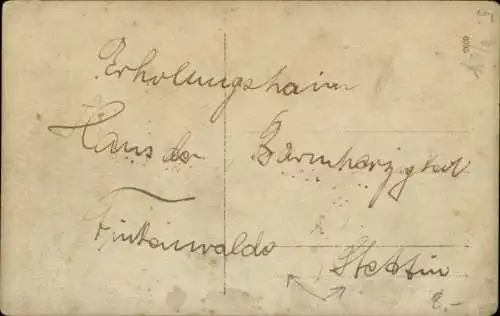 Erholungsheim
Haus der Barmherzigkeit
Finkenwalde
Stettin
8.-